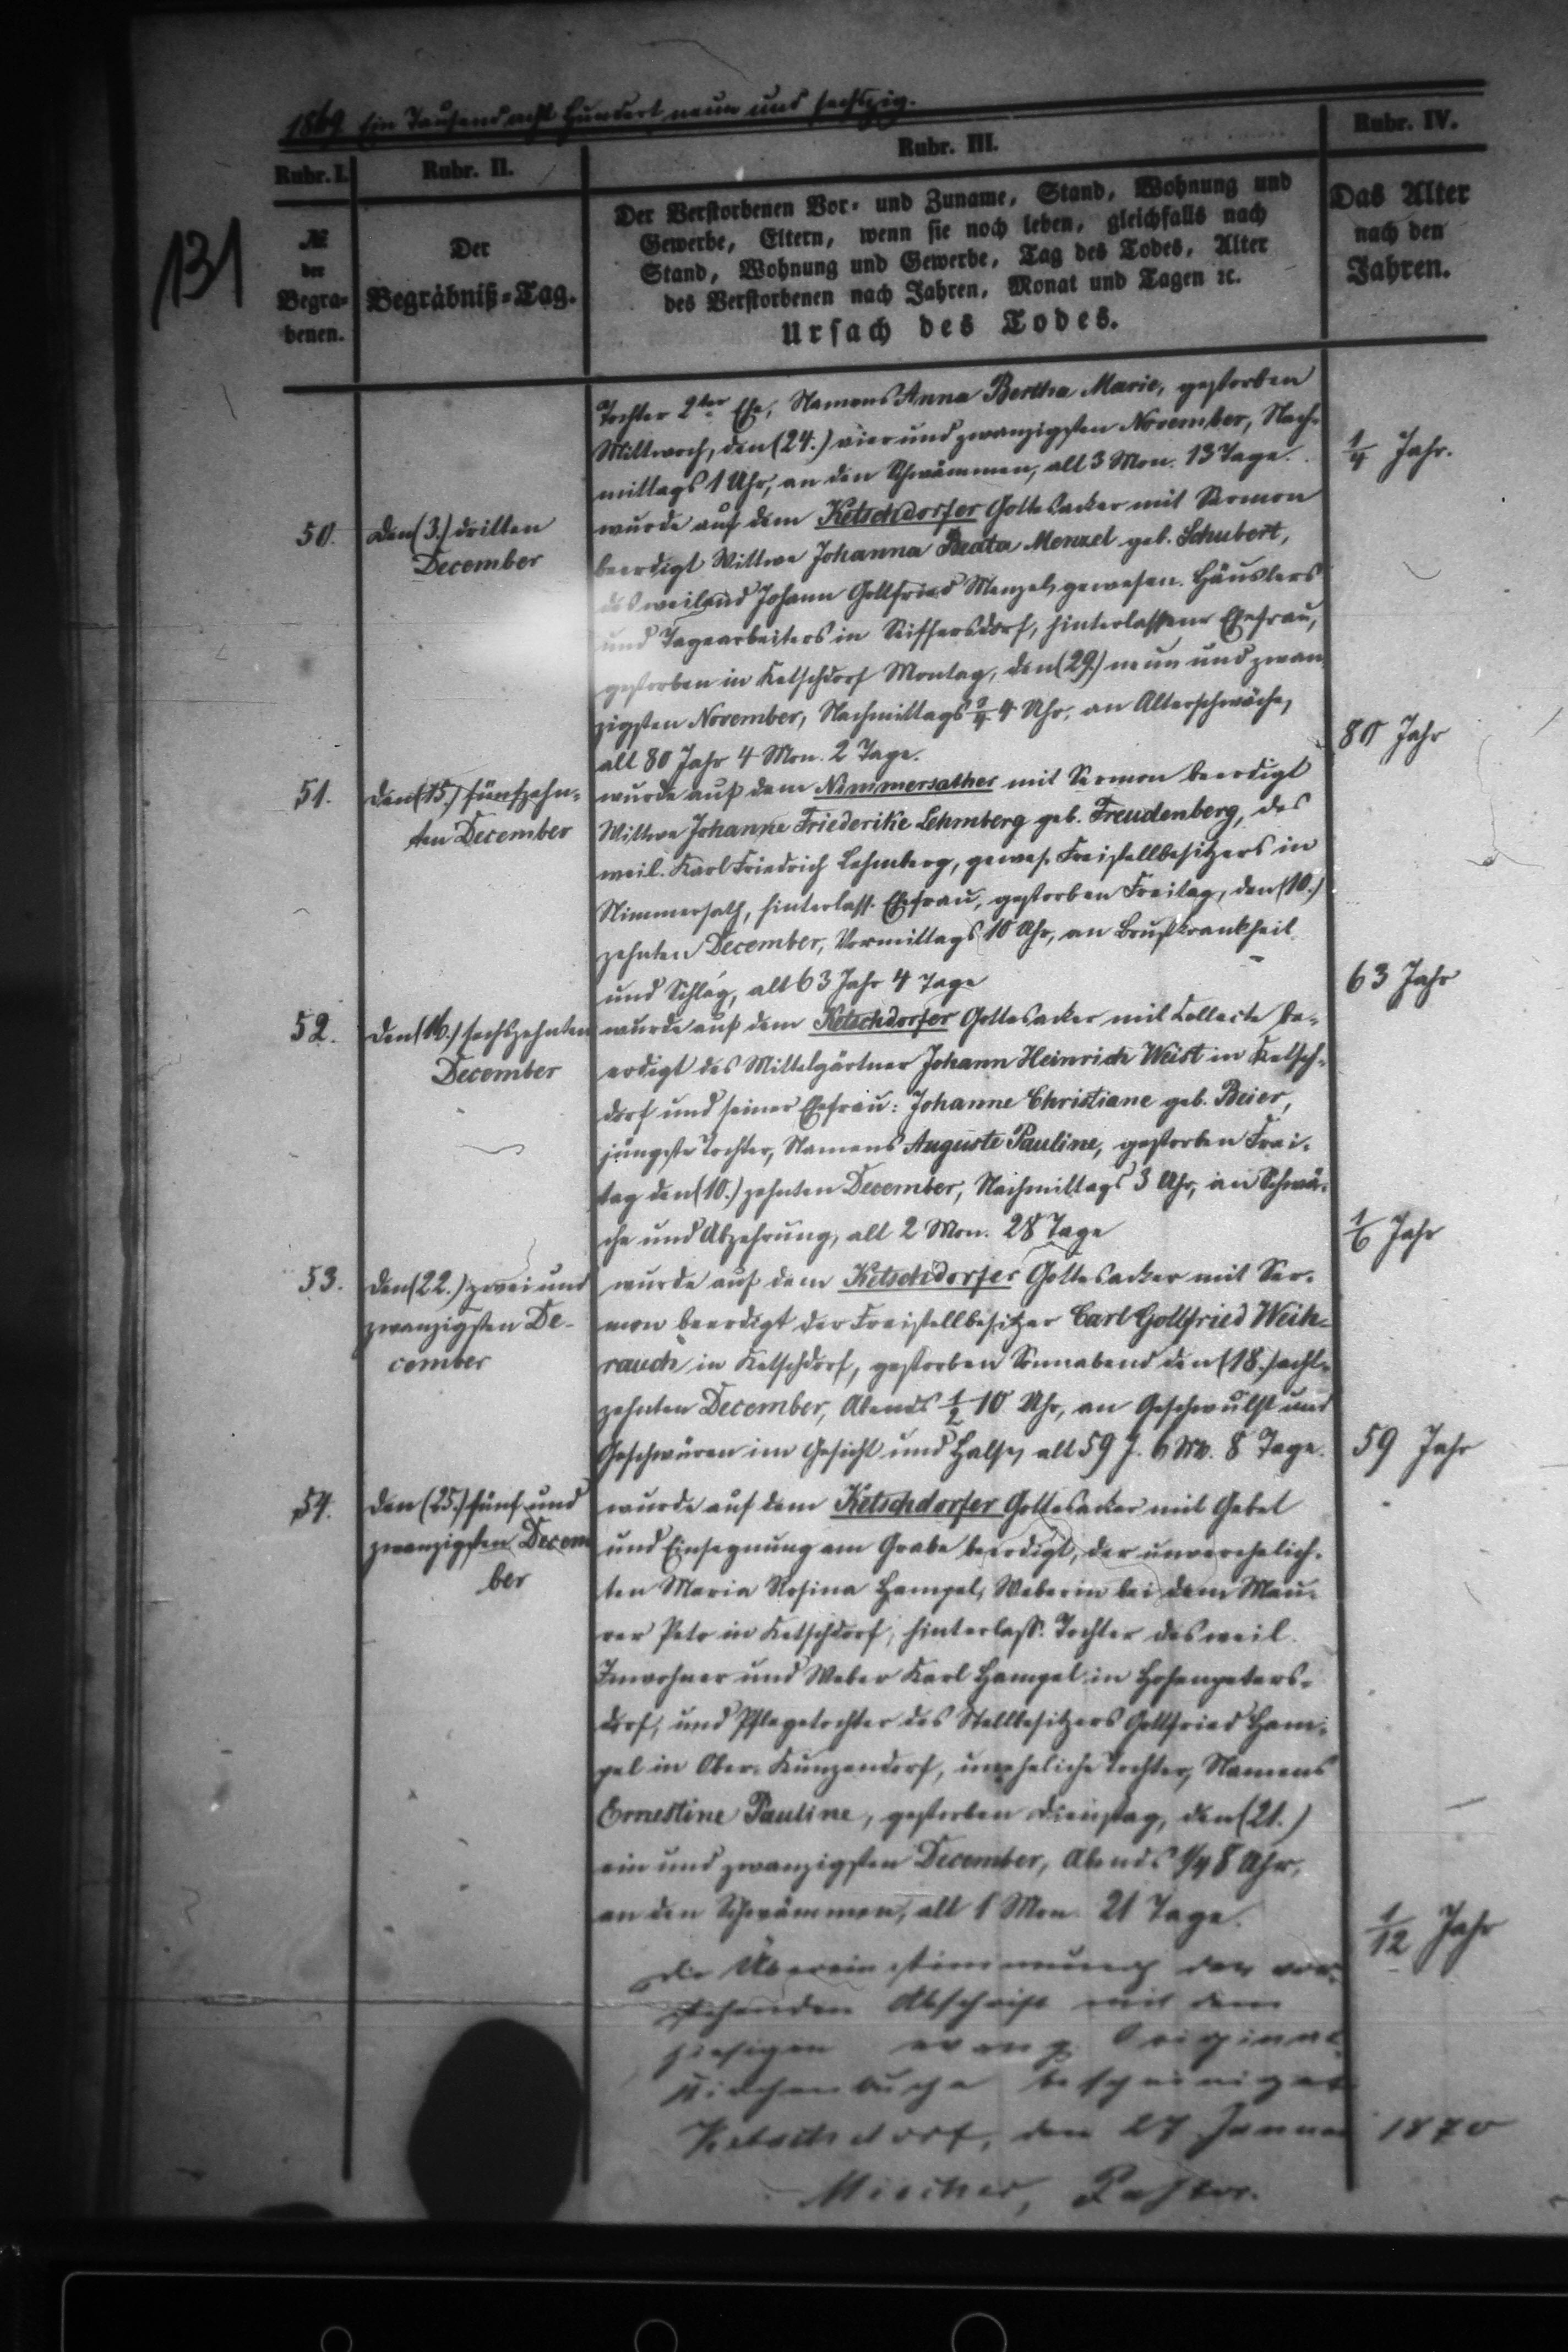 1869 Ein Tausend acht hundert neun und sechszig.
131
Rubr. I.
Rubr. II.
Rubr. III.
Rubr. IV.
№
der
Begra-
benen.
Der
Begräbniß-Tag.
Der Verstorbenen Vor- und Zuname, Stand, Wohnung und
Gewerbe, Eltern, wenn sie noch leben, gleichfalls nach
Stand, Wohnung und Gewerbe, Tag des Todes, Alter
des Verstorbenen nach Jahren, Monat und Tagen ꝛc.
Ursach des Todes.
Das Alter
nach den
Jahren.
Tochter 2ter Ehe, Namens Anna Bertha Marie, gestorben
Mittwoch, den (24.) vier und zwanzigsten November, Nach-
mittags 1 Uhr, an den Schwämmen, alt 3 Mon. 13 Tage.
1/4 Jahr.
50.
den (3.) dritten
December
wurde auf dem Ketschdorfer Gottesacker mit Sermon
beerdigt Wittwe Johanna Beata Menzel geb. Schubert,
des weiland Johann Gottfried Menzel, gewesen. Häuslers
und Tagearbeiters in Seiffersdorf, hinterlassene Ehefrau,
gestorben in Ketschdorf Montag, den (29.) neun und zwan-
zigsten November, Nachmittags 3/4 4 Uhr, an Altersschwäche,
alt 80 Jahr 4 Mon. 2 Tage.
80 Jahr
51.
den (15.) fünfzehn-
ten December
wurde auf dem Nimmersather mit Sermon beerdigt
Wittwe Johanne Friederike Lehmberg geb. Freudenberg, des
weil. Karl Friedrich Lehmberg, gewes. Freistellbesitzers in
Nimmersath, hinterlass. Ehefrau, gestorben Freitag, den (10.)
zehnten December, Vormittags 10 Uhr, an Brustkrankheit
und Schlag, alt 63 Jahr 4 Tage
63 Jahr
52.
den (16.) sechszehnten
December
wurde auf dem Ketschdorfer Gottesacker mit Collecte be-
erdigt des Mittelgärtner Johann Heinrich Weist in Ketsch-
dorf und seiner Ehefrau: Johanne Christiane geb. Beier,
jüngste Tochter, Namens Auguste Pauline, gestorben Frei-
tag den (10.) zehnten December, Nachmittags 3 Uhr, an Schwä-
che und Abzehrung, alt 2 Mon. 28 Tage
1/6 Jahr
53.
den (22.) zwei und
zwanzigsten De-
cember
wurde auf dem Ketschdorfer Gottesacker mit Ser-
mon beerdigt der Freistellbesitzer Carl Gottfried Weih-
rauch in Ketschdorf, gestorben Sonnabend den (18.) acht-
zehnten December, Abends 1/2 10 Uhr, an Geschwulst und
Geschwüren im Gesicht und Halse, alt 59 J. 6 Mo. 8 Tage.
59 Jahr
54.
den (25.) fünf und
zwanzigsten Decem
ber
wurde auf dem Ketschdorfer Gottesacker mit Gebet
und Einsegnung am Grabe beerdigt, der unverehelich-
ten Maria Rosina Hampel, Weberin bei dem Mau-
rer in Ketschdorf, hinterlass. Tochter des weil.
Inwohner und Weber Karl Hampel in Hohenpeters-
dorf, und Pflegetochter des Stellbesitzers Gottfried Ham-
pel in Ober-Kunzendorf, uneheliche Tochter, Namens
Ernestine Pauline, gestorben Dienstag, den (21.)
ein und zwanzigsten December, Abends 1/4 8 Uhr,
an den Schwämmen, alt 1 Mon. 21 Tage.
1/12 Jahr
Die Übereinstimmung der vor-
stehenden Abschrift mit dem
hiesigen evang. Original
Kirchenbuche bescheiniget
Ketschdorf, den 27 Januar 1870
Pastor.